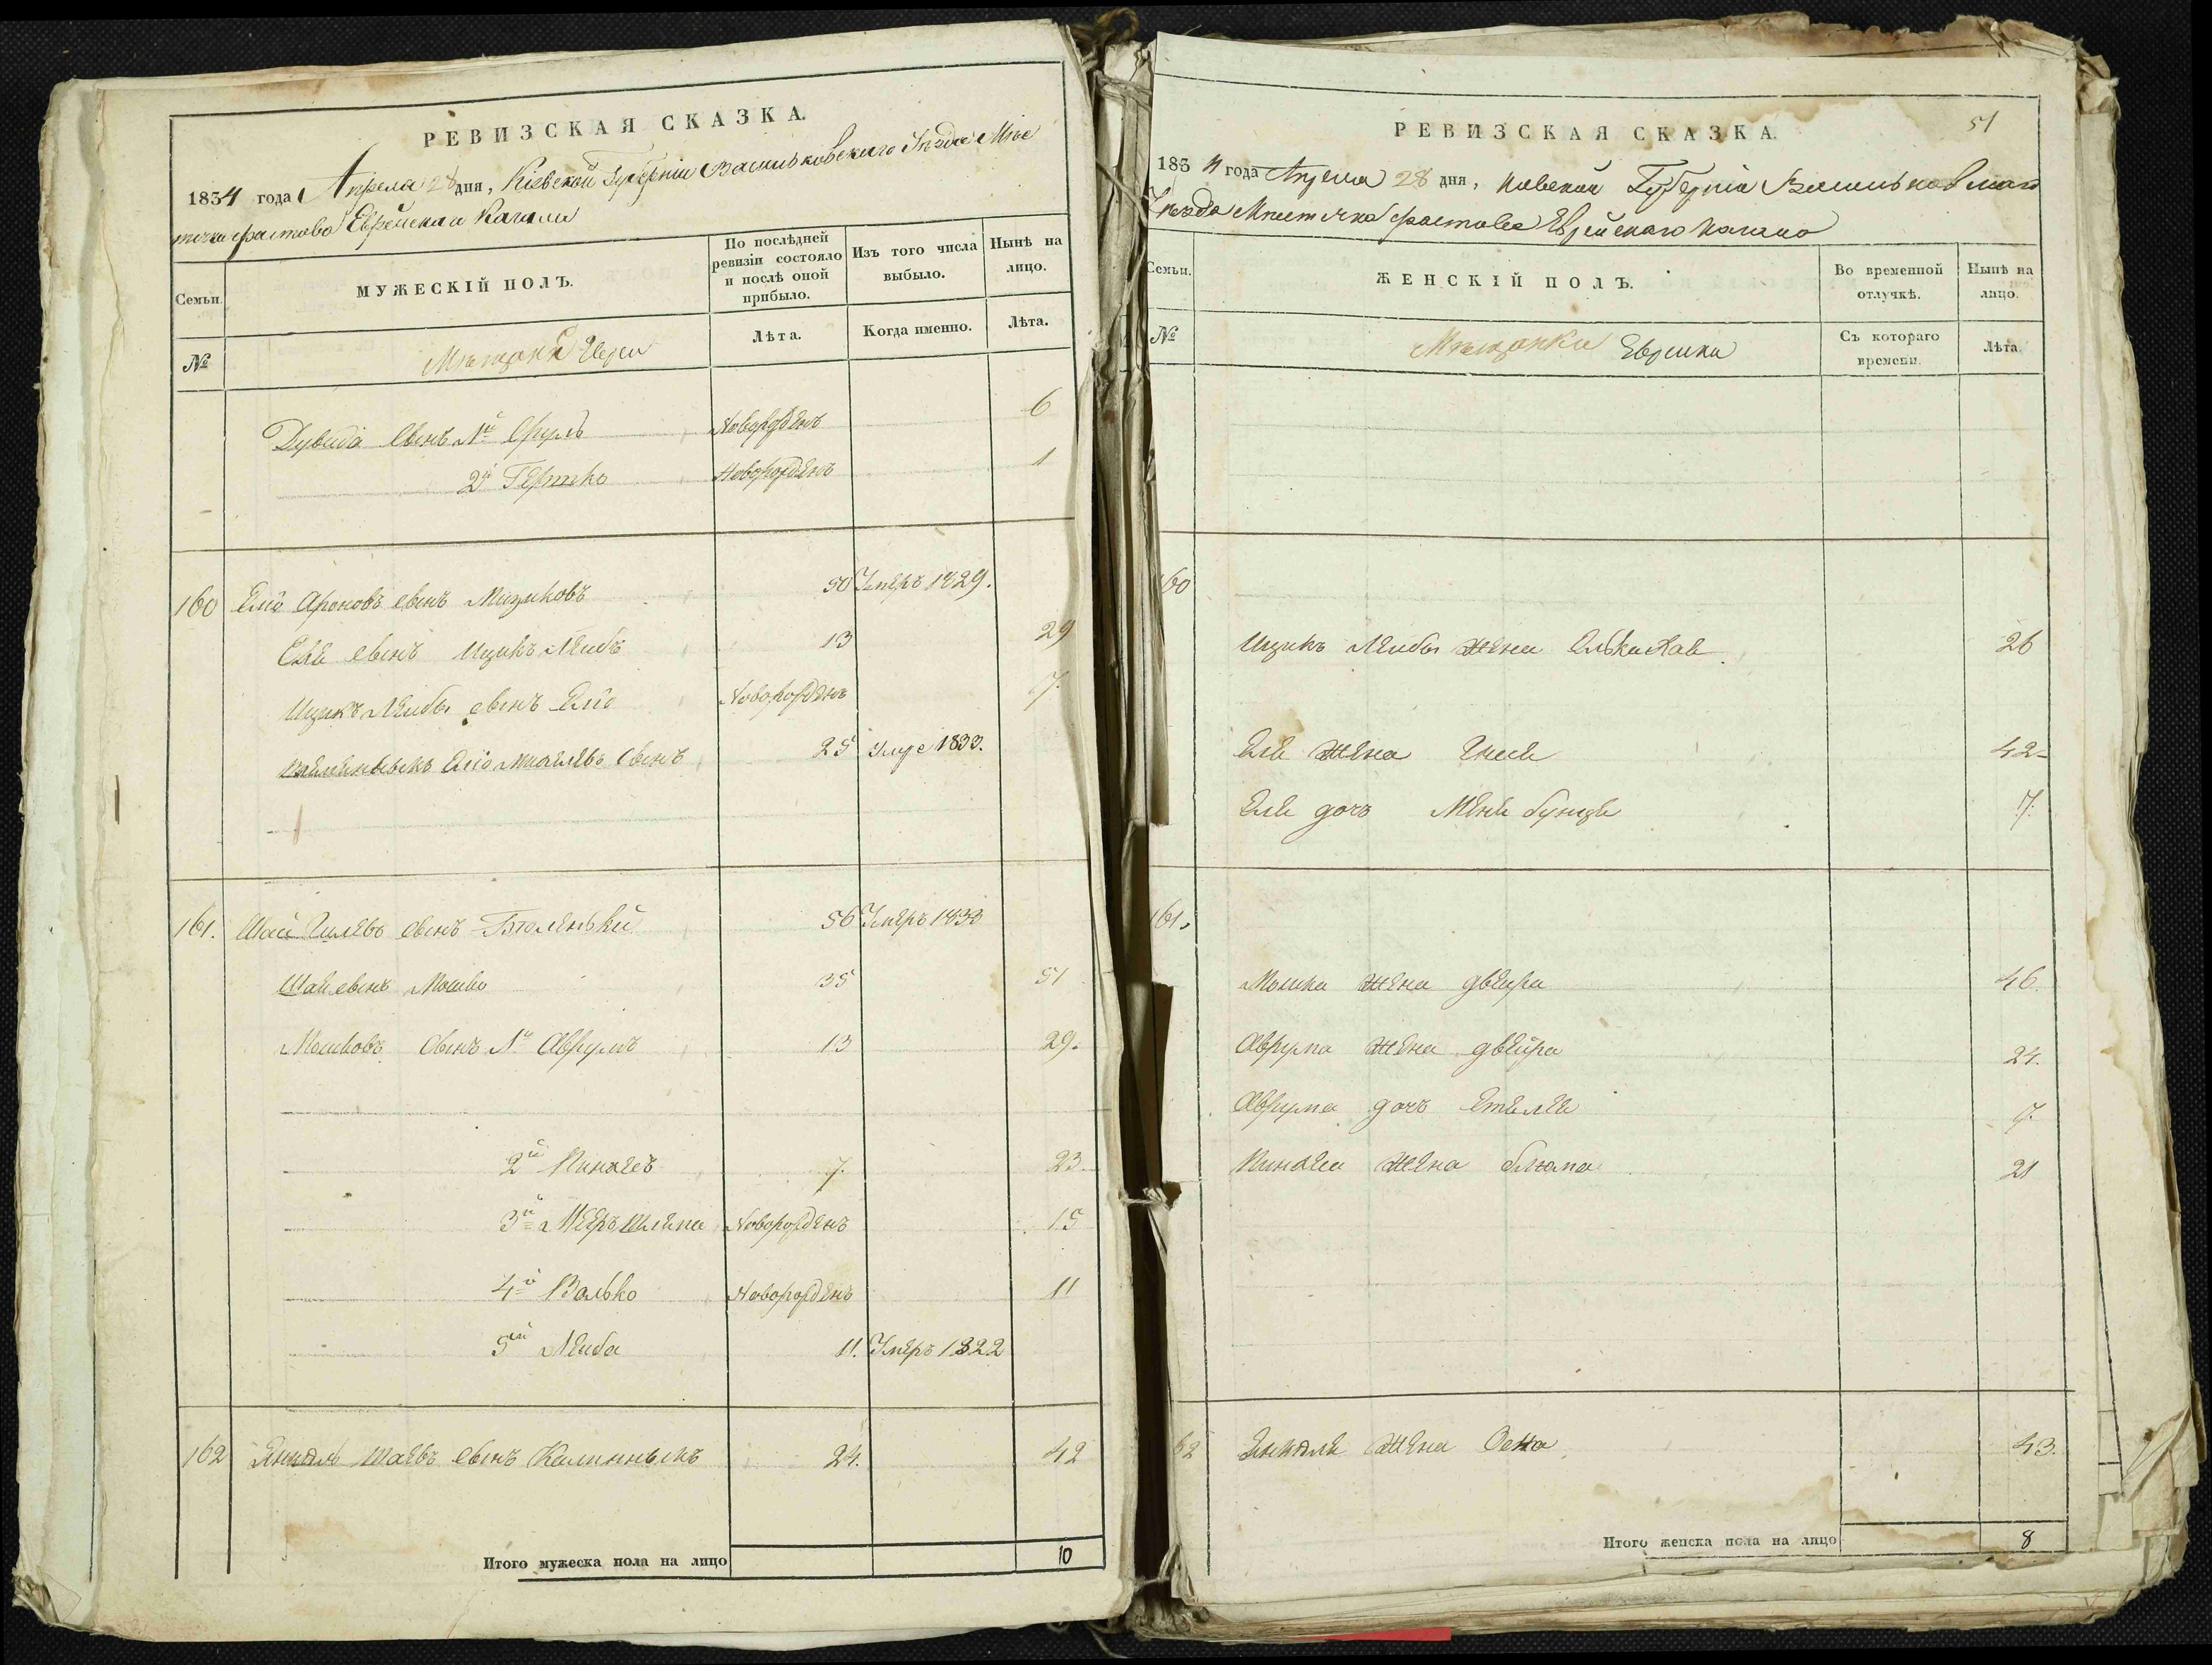 РЕВИЗСКАЯ СКАЗКА.
1834 года Апреля 28 дня, Кіевской Губерніи Васильковскаго Уѣзда Мѣс
течка Фастова Еврейскаго Кагала
Семьи.
МУЖЕСКІЙ ПОЛЪ.
По послѣдней ревизіи состояло и послѣ оной прибыло.
Изъ того числа выбыло.
Нынѣ на лицо.
№
Мѣщане Евреи
Лѣта.
Когда именно.
Лѣта.
Дувида сынъ 1й Сруль Новорожденъ 6
2й Гершко Новорожденъ 1
160 Еліо Ароновъ сынъ 50 Умеръ 1829.
Еліи сынъ Ицикъ Лейбъ 13 29
Ицикъ Лейбы сынъ Еліо Новорожденъ 7.
Еліо сынъ 25 1833.
161. Шаіи сынъ 56 Умеръ 1833
Шаи сынъ Мошко 35 51
Мошковъ сынъ 1й Аврумъ 13 29.
2й Пинхесъ 7. 23
3й Мееръ Шлема Новорожденъ 15
4й Валько Новорожденъ 11
5й Лейба 11. Умеръ 1822
162 Янкель Шаевъ сынъ 24. 42
Итого мужеска пола на лицо 10
РЕВИЗСКАЯ СКАЗКА.
51
1834 года Апреля 28 дня, Кіевской Губерніи Васильковскаго
Уѣзда Мѣстечка Фастова Еврейскаго Кагала
Семьи.
ЖЕНСКІЙ ПОЛЪ.
Во временной отлучкѣ.
Нынѣ на лицо.
№
Мѣщанки Еврейки
Съ котораго времени.
Лѣта.
160
Ицикъ Лейбы жена 26
Еліи жена 42
Еліи дочь 7.
161.
Мошка жена двейра 46.
Аврума жена двейра 24.
Аврума дочь 7.
Пинхеса жена блюма 21
62 Янкеля жена 43.
Итого женска пола на лицо 8